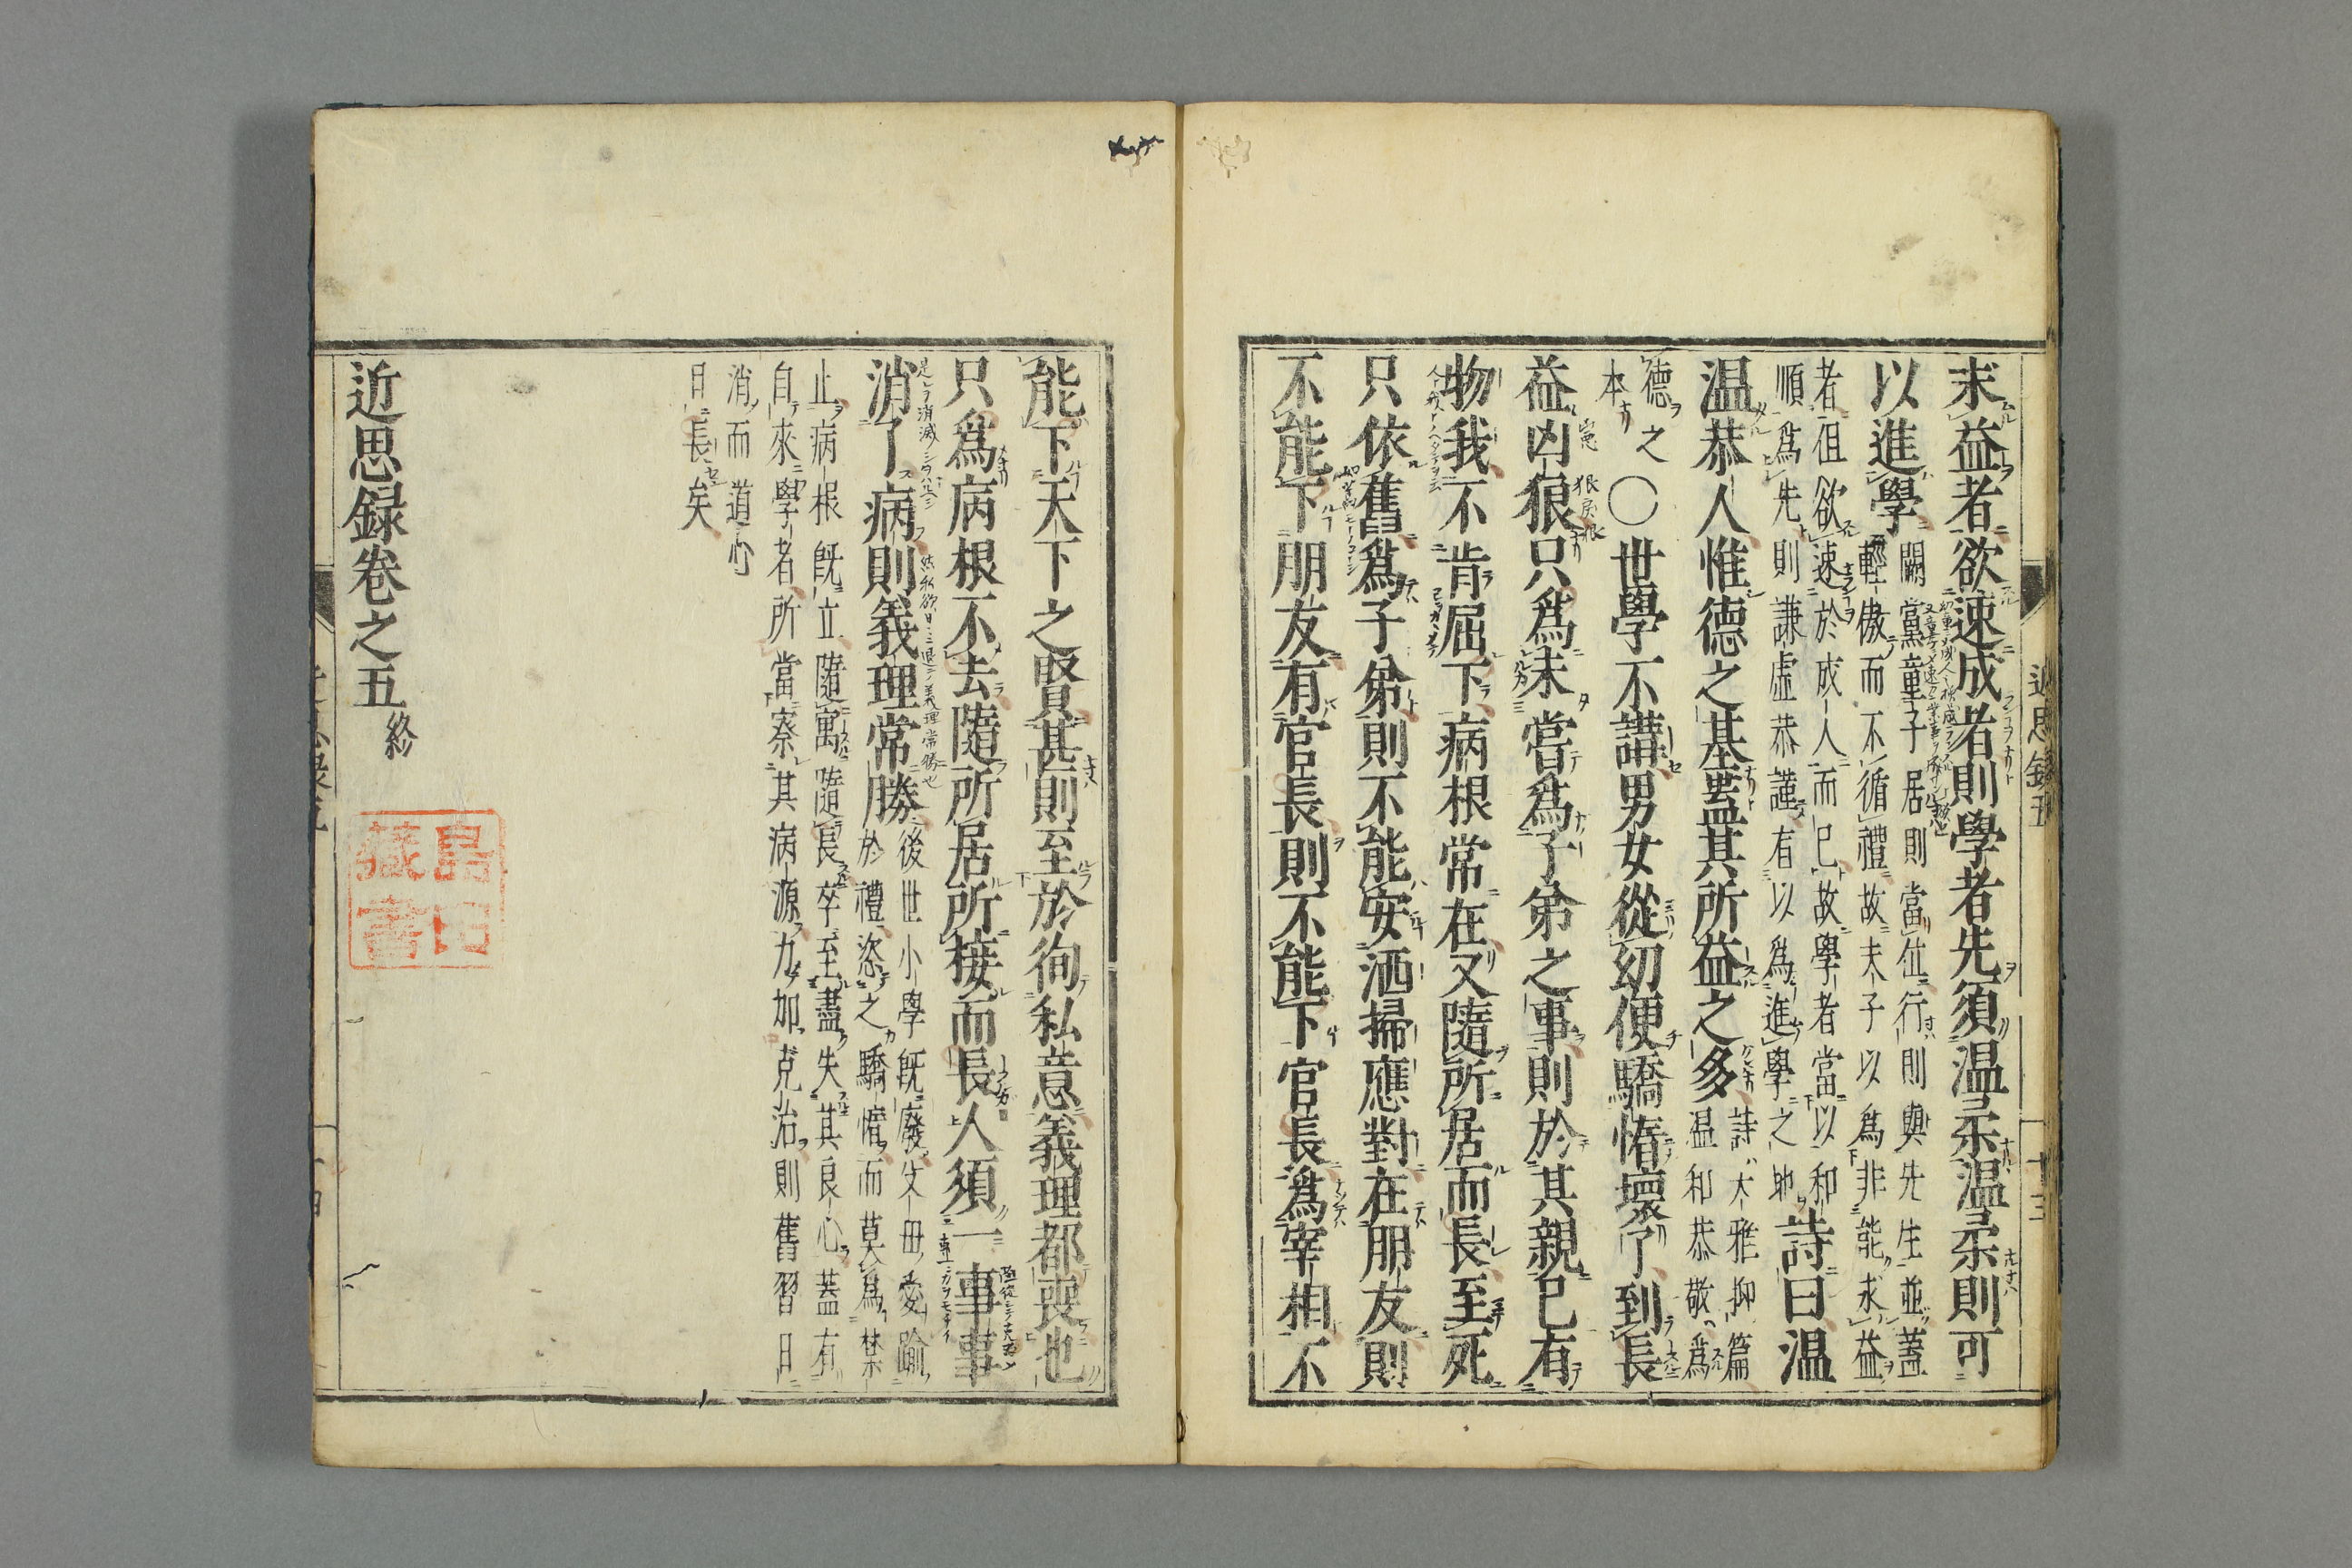 求益者欲速成者則學者先須温柔温柔則可
以進學
闕黨童子居則當位行則與先生並蓋
輕傲而不循禮故夫子以爲非能求益
者徂欲速於成人而已故學者當以和
順爲先則謙虚恭謹有以爲進學之地
詩曰温
温恭人惟德之基葢其所益之多
詩大雅抑篇
温和恭敬爲
德之
本
〇世學不講男女從幼便驕惰壞了到長
益凶狠只爲未嘗爲子弟之事則於其親已有
物我不肯屈下病根常在又隨所居而長至死
只依舊爲子弟則不能安洒掃應對在朋友則
不能下朋友有官長則不能下官長爲宰相不
近思録五
十三
能下天下之賢甚則至於徇私意義理都喪也
只爲病根不去隨所居所接而長人須一事事
消了病則義理常勝
後世小學既廢父母愛踰
於禮恣之驕惰而莫爲禁
止病根既立隨寓隨長卒至盡失其良心蓋有
自來學者所當察其病源力加克治則舊習日
消而道心
日長矣
近思録卷之五終
藏書